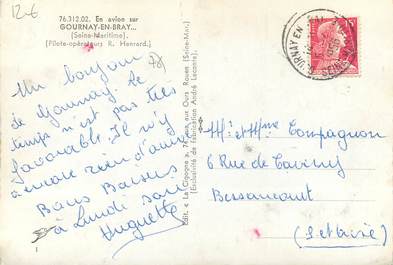 12-6
76.312.02. En avion sur
GOURNAY-EN-BRAY...
(Seine-Maritime).
(Pilote-opérateurs R. Henrard.)
Un bonjour
de Gournay. Le
temps n'est pas très
favorable. Il n'y
a encore rien d'autre
Bons Baisers
à Lundi soir
Huguette
1
Edit. « La Cigogne », 74, rue aux Ours Rouen (Seine-Mar.)
(Exclusivité de fabrication André Leconte).
GOURNAY EN
Mr et Mme Compagnon
6 Rue de Taverny
Bessancourt
(S et Oise)